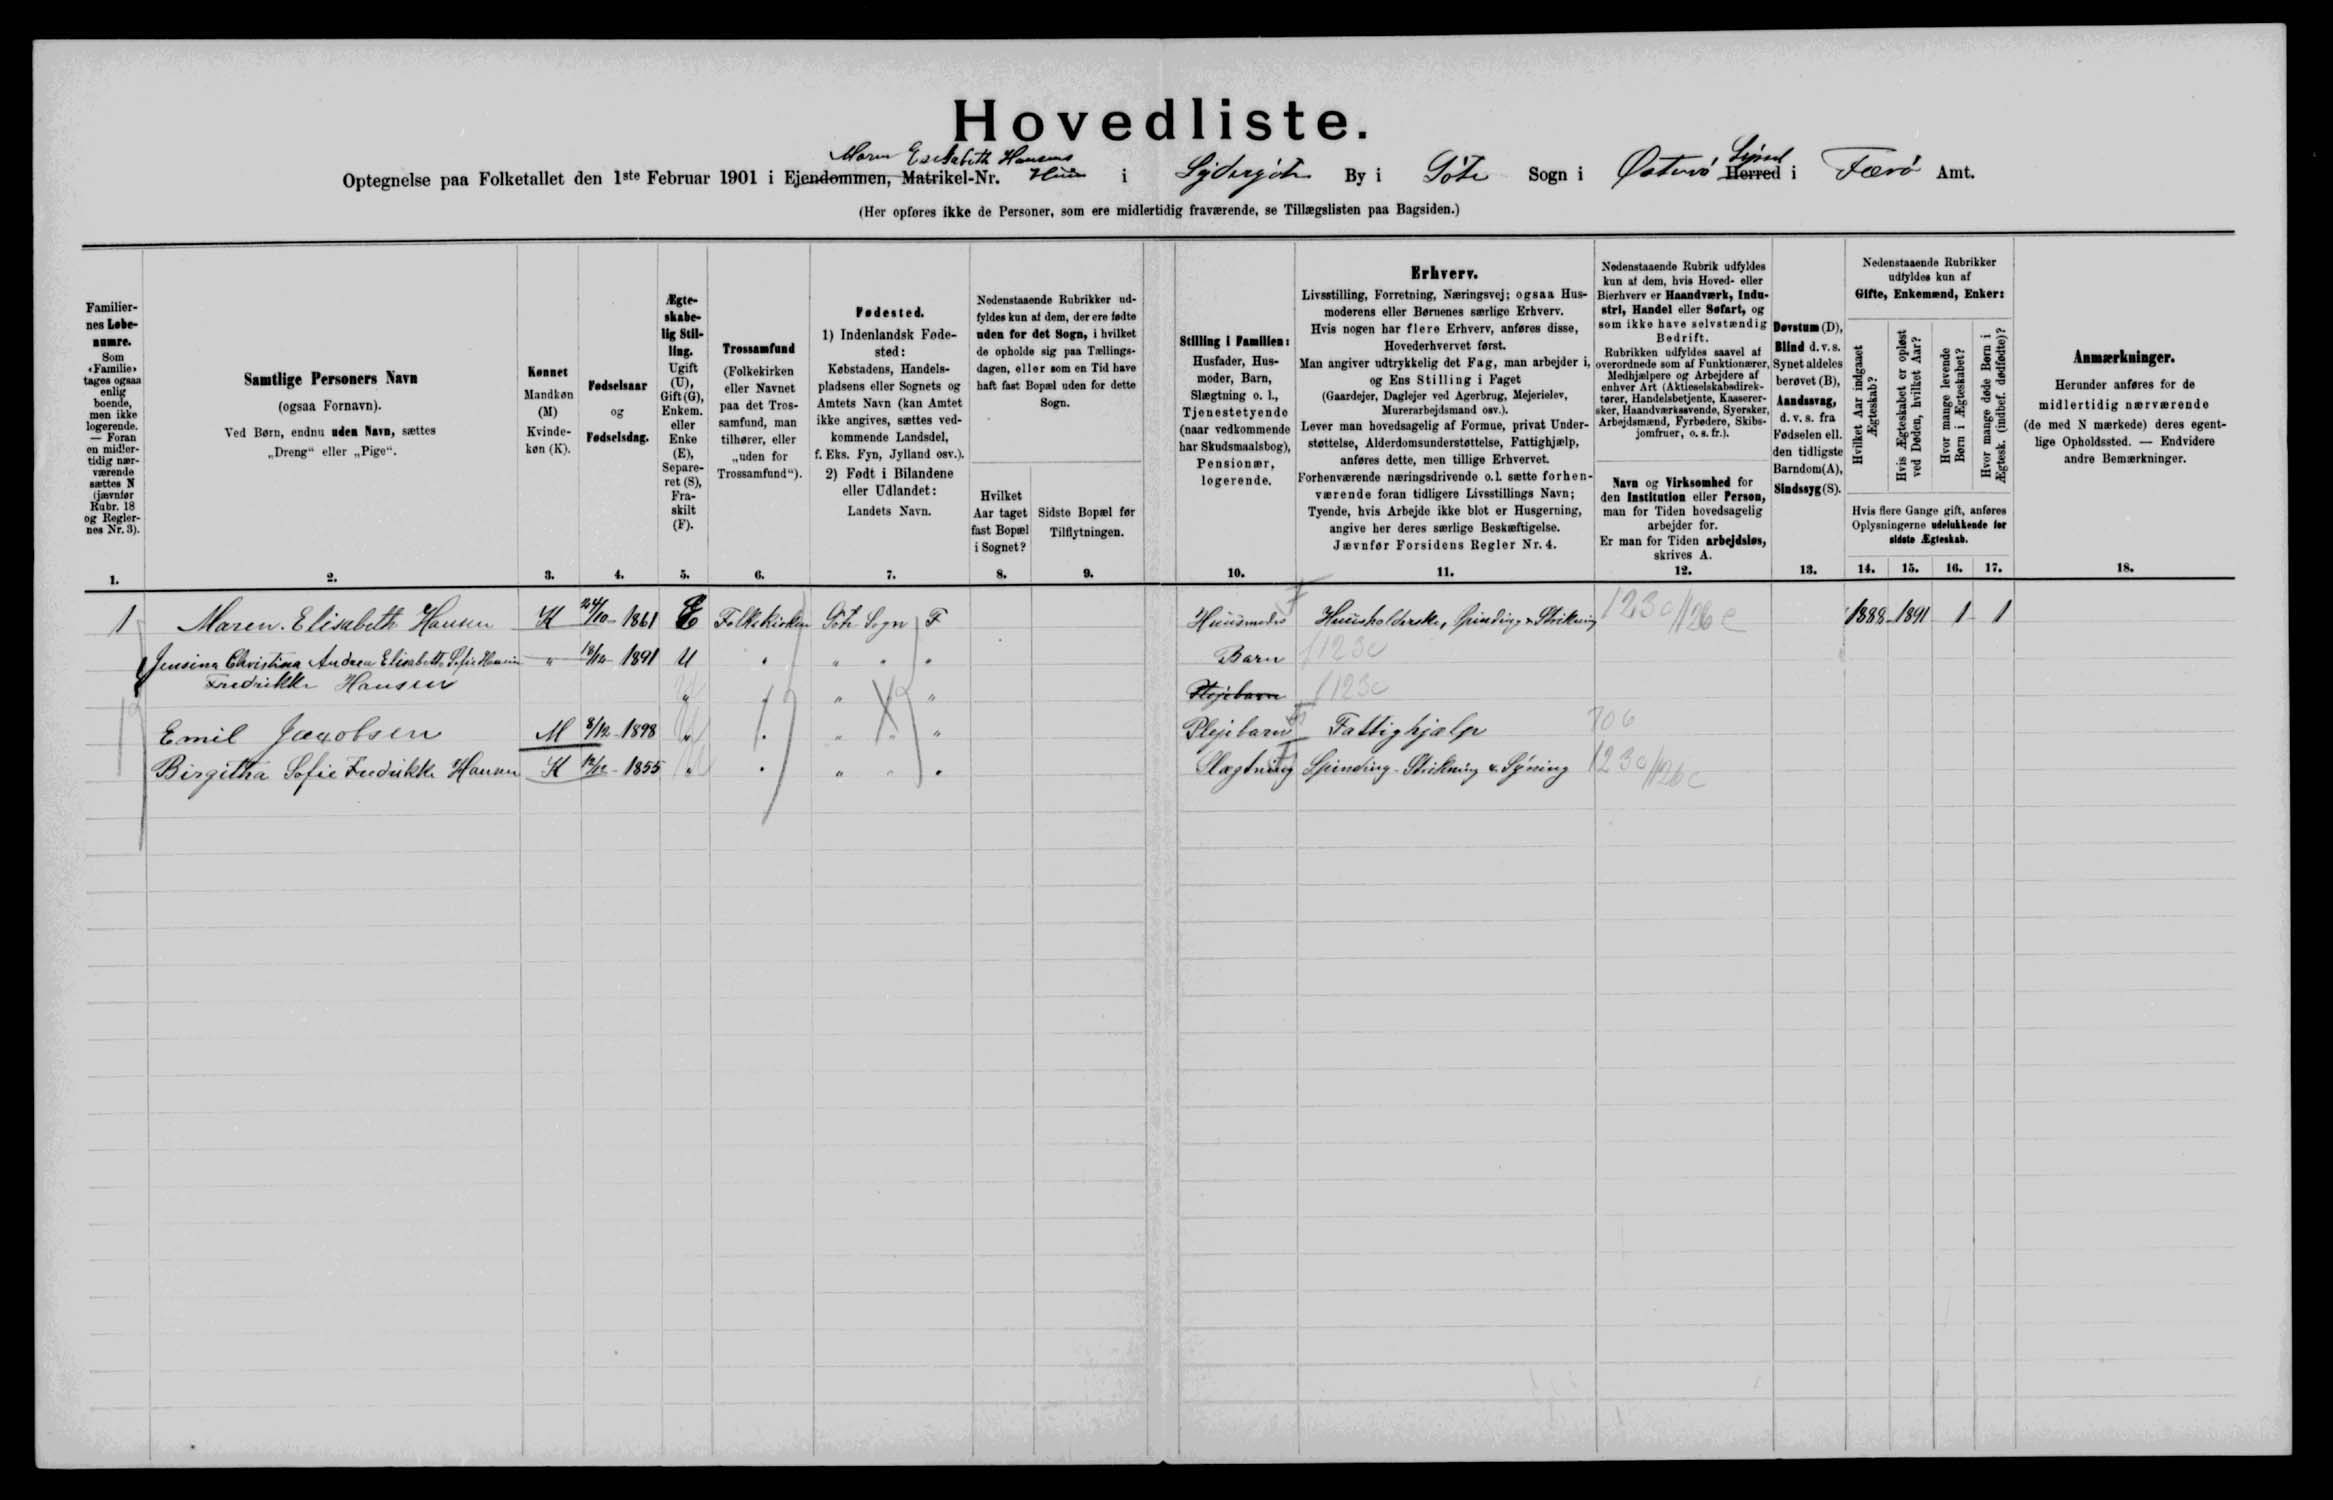 Hovedliste.
Maren Elisabeth Hansens Lýssel
Optegnelse paa Folketallet den 1ste Februar 1901 i Ejendommen, Matrikel-Nr. Huus i Sydergöte By i Göte Sogn i Österö Herred i Færö Amt.
(Her opføres ikke de Personer, som ere midlertidig fraværende, se Tillægslisten paa Bagsiden.)
Familiernes Løbenumre. Som «Familie» tages ogsaa enlig boende, men ikke logerende. — Foran en midlertidig nærværende sættes N (jævnfør Rubr. 18 og Reglernes Nr. 3).
Samtlige Personers Navn (ogsaa Fornavn). Ved Børn, endnu uden Navn, sættes „Dreng“ eller „Pige“.
Kønnet Mandkøn (M) Kvindekøn (K).
Fødselsaar og Fødselsdag.
Ægteskabelig Stilling. Ugift (U), Gift (G), Enkem. eller Enke (E), Separeret (S), Fraskilt (F).
Trossamfund (Folkekirken eller Navnet paa det Trossamfund, man tilhører, eller „uden for Trossamfund“).
Fødested. 1) Indenlandsk Fødested: Købstadens, Handelspladsens eller Sognets og Amtets Navn (kan Amtet ikke angives, sættes vedkommende Landsdel, f. Eks. Fyn, Jylland osv.). 2) Født i Bilandene eller Udlandet: Landets Navn.
Nedenstaaende Rubrikker udfyldes kun af dem, der ere fødte uden for det Sogn, i hvilket de opholde sig paa Tællingsdagen, eller som en Tid have haft fast Bopæl uden for dette Sogn.
Hvilket Aar taget fast Bopæl i Sognet?
Sidste Bopæl før Tilflytningen.
Stilling i Familien: Husfader, Husmoder, Barn, Slægtning o. l., Tjenestetyende (naar vedkommende har Skudsmaalsbog), Pensionær, logerende.
Erhverv.
Livsstilling, Forretning, Næringsvej; ogsaa Husmoderens eller Børnenes særlige Erhverv.
Hvis nogen har flere Erhverv, anføres disse, Hovederhvervet først.
Man angiver udtrykkelig det Fag, man arbejder i, og Ens Stilling i Faget (Gaardejer, Daglejer ved Agerbrug, Mejerielev, Murerarbejdsmand osv.).
Lever man hovedsagelig af Formue, privat Understøttelse, Alderdomsunderstøttelse, Fattighjælp, anføres dette, men tillige Erhvervet.
Forhenværende næringsdrivende o.l. sætte forhenværende foran tidligere Livsstillings Navn;
Tyende, hvis Arbejde ikke blot er Husgerning, angive her deres særlige Beskæftigelse.
Jævnfør Forsidens Regler Nr. 4.
Nedenstaaende Rubrik udfyldes kun af dem, hvis Hoved- eller Bierhverv er Haandværk, Industri, Handel eller Søfart, og som ikke have selvstændig Bedrift.
Rubrikken udfyldes saavel af overordnede som af Funktionærer, Medhjælpere og Arbejdere af enhver Art (Aktieselskabsdirektører, Handelsbetjente, Kasserersker, Haandværkssvende, Syersker, Arbejdsmænd, Fyrbødere, Skibsjomfruer, o. s. fr.).
Navn og Virksomhed for den Institution eller Person, man for Tiden hovedsagelig arbejder for.
Er man for Tiden arbejdsløs, skrives A.
Døvstum (D), Blind d. v. s. Synet aldeles berøvet (B), Aandssvag, d. v. s. fra Fødselen ell. den tidligste Barndom (A), Sindssyg (S).
Nedenstaaende Rubrikker udfyldes kun af Gifte, Enkemænd, Enker:
Hvilket Aar indgaaet Ægteskab?
Hvis Ægteskabet er opløst ved Døden, hvilket Aar?
Hvor mange levende Børn i Ægteskabet?
Hvor mange døde Børn i Ægtesk. (indbef. dødfødte)?
Hvis flere Gange gift, anføres Oplysningerne udelukkende for sidste Ægteskab.
Anmærkninger.
Herunder anføres for de midlertidig nærværende (de med N mærkede) deres egentlige Opholdssted. — Endvidere andre Bemærkninger.
1. 2. 3. 4. 5. 6. 7. 8. 9. 10. 11. 12. 13. 14. 15. 16. 17. 18.
1 Maren Elisabeth Hansen K 24/10 1861 E Folkekirken Göte Sogn F Huusmoder Huusholderske, Spinding & Strikning 123c//126c 1888 1891 1 1
Jensina Christina Andrea Elisabeth Sofie Hansen " 18/12 1891 U " " " " Barn 123c
Fredrikke Hansen " " " " " Plejebarn 123c
Emil Jacobsen M 8/12 1898 " " " " " Plejebarn Fattighjælp 706
Birgitha Sofie Fredrikke Hansen K 12/12 1855 " " " " " Slægtning Spinding - Strikning & Syning 123c//126c